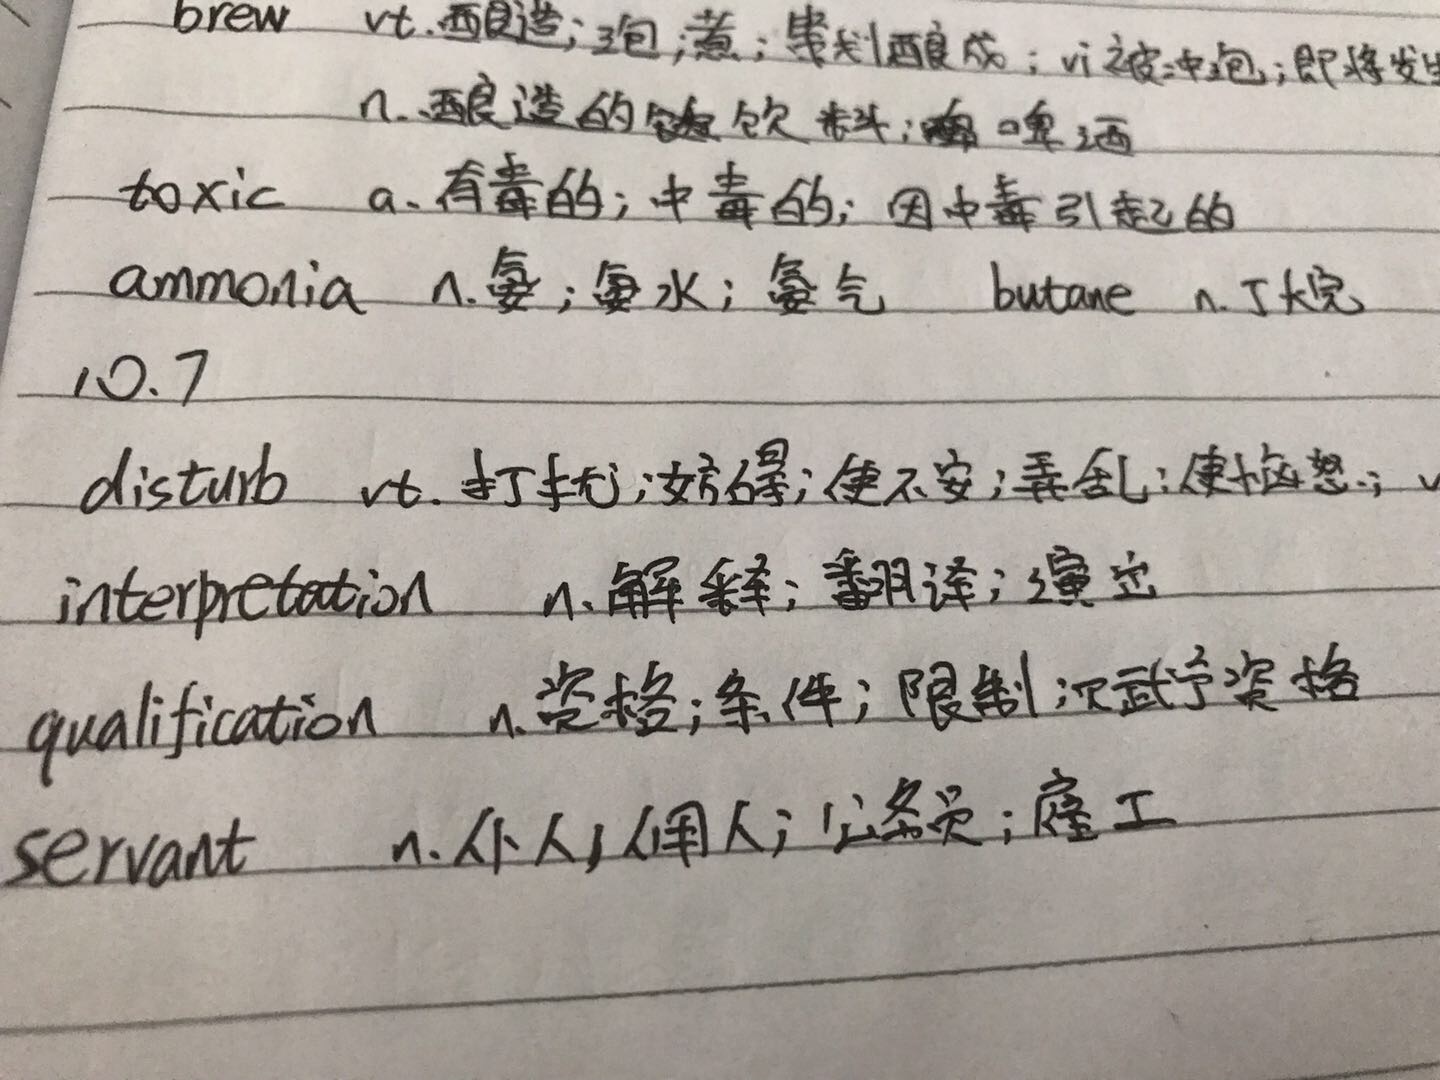 brew vt.酿造;泡;煮;策划酿成;vi被冲泡;即将发生
n.酿造的饮料;啤酒
toxic a.有毒的;中毒的;因中毒引起的
ammonia n.氨;氨水;氨气 butane n.丁烷
10.7
disturb vt.打扰;妨碍;使不安;弄乱;使恼怒;
interpretation n.解释;翻译;演出
qualification n.资格;条件;限制;赋予资格
servant n.仆人;佣人;公务员;雇工